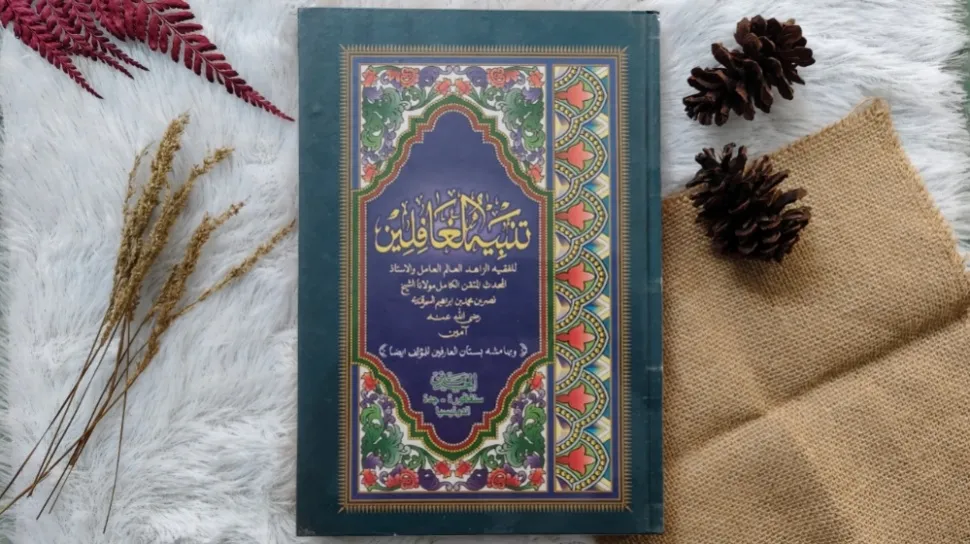 تنبيه الغافلين
للفقيه الزاهد العالم العامل والاستاذ
المحدث المتقن الكامل مولانا الشيخ
نصر بن محمد بن ابراهيم السمرقندي
رضى الله عنه
آمين
﴿ وبهامشه بستان العارفين للمؤلف ايضا ﴾
الحرمين
سنقافورة - جدة
اندونيسيا